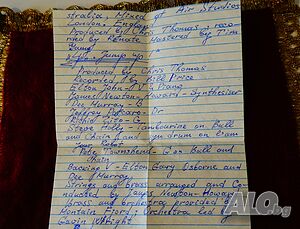 stralia, Mixed at Air Studios
London, England
Produced by Chris Thomas, reco
Mastered by Tim
Young
Jump up
Produced by Chris Thomas
Recorded by Bill Price
Elton John - V, Piano
James Newton-Howard - Synthesizer
Dee Murray - B
Jeffrey Porcaro - Dr
Richie Zito - G
Steve Holly - tambourine on Ball
and Chain and
Pete Townshend - G on Ball and
Chain
Backing V - Elton, Gary Osborne and
Dee Murray
Strings and brass arranged and Co-
nducted by James Newton-Howard
Brass and orchestra provided by
Mountain Fjord, Orchestra Led by
Gavin Wright
ALO.bg